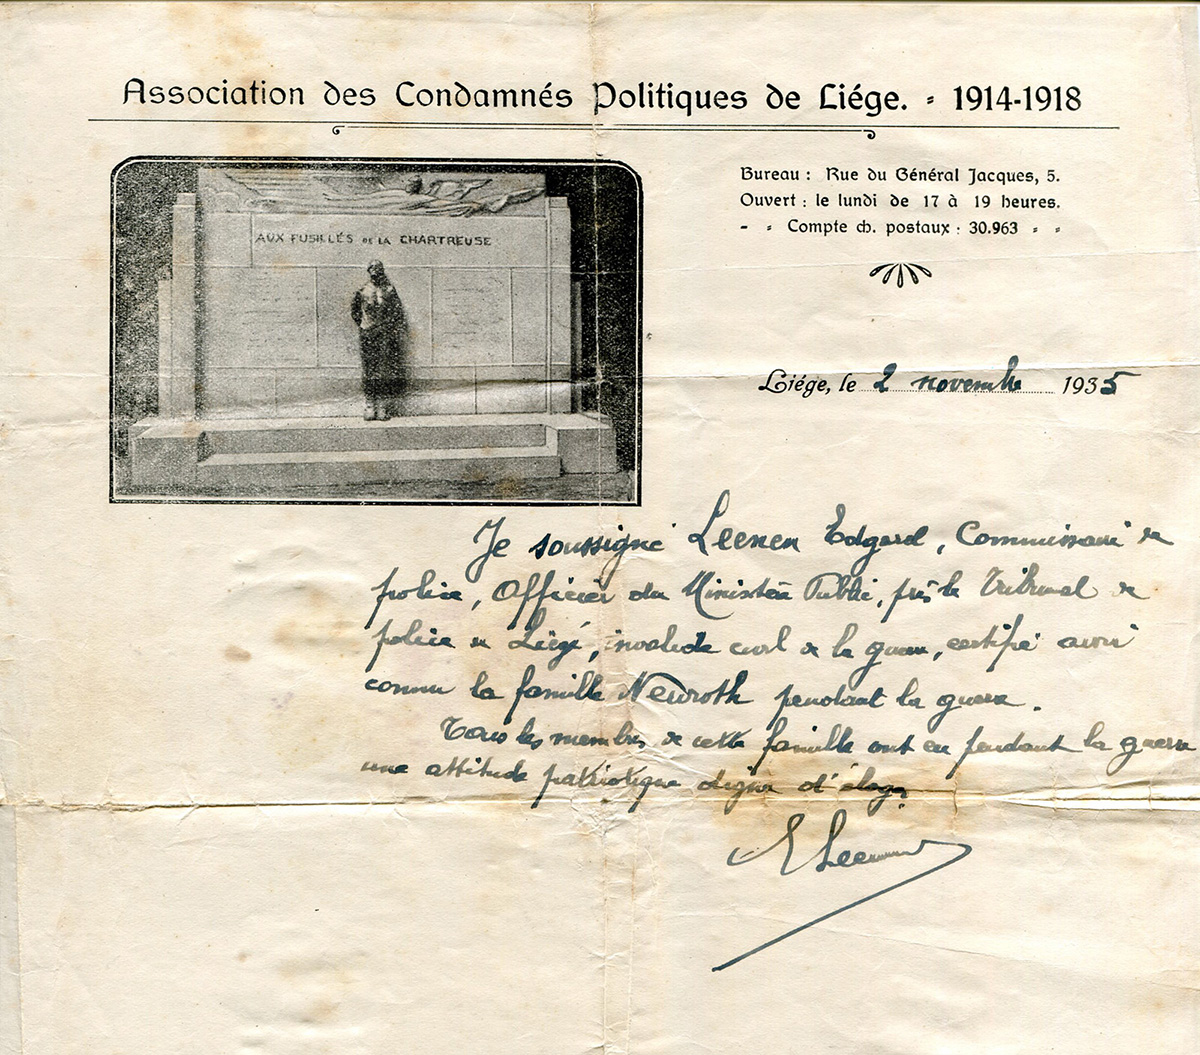 Association des Condamnés Politiques de Liége. - 1914-1918
AUX FUSILLÉS DE LA CHARTREUSE
Bureau : Rue du Général Jacques, 5.
Ouvert : le lundi de 17 à 19 heures.
- - Compte ch. postaux : 30.963 - -
Liége, le 2 novembre 1935
Je soussigné Leenen Edgard, Commissaire de
police, Officier du Ministère Public, près le Tribunal de
police de Liége, invalide civil de la guerre, certifie avoir
connu la famille Newroth pendant la guerre.
Tous les membres de cette famille ont eu pendant la guerre
une attitude patriotique digne d'éloge.
E Leenen